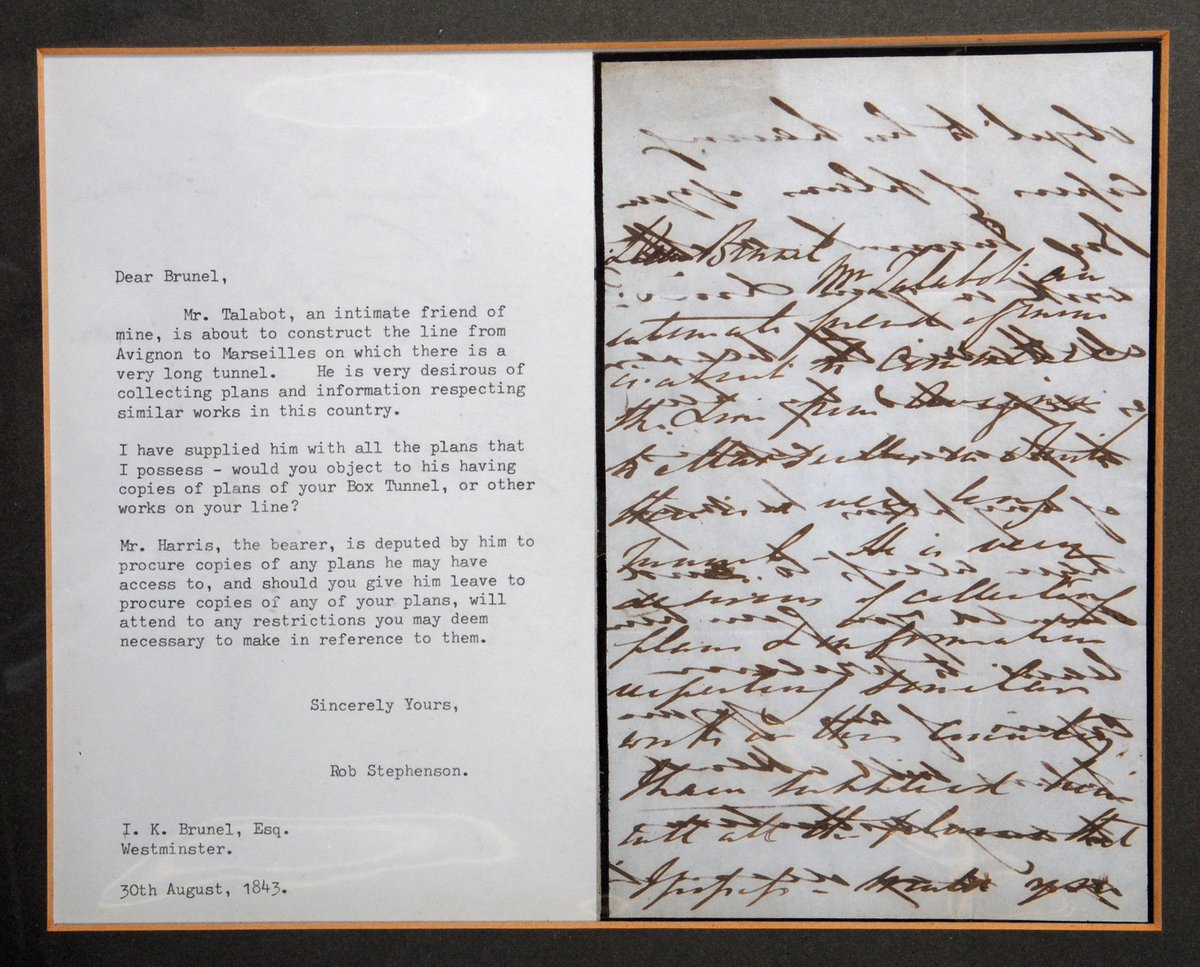 Dear Brunel,
Mr. Talabot, an intimate friend of
mine, is about to construct the line from
Avignon to Marseilles on which there is a
very long tunnel. He is very desirous of
collecting plans and information respecting
similar works in this country.
I have supplied him with all the plans that
I possess - would you object to his having
copies of plans of your Box Tunnel, or other
works on your line?
Mr. Harris, the bearer, is deputed by him to
procure copies of any plans he may have
access to, and should you give him leave to
procure copies of any of your plans, will
attend to any restrictions you may deem
necessary to make in reference to them.
Sincerely Yours,
Rob Stephenson.
I. K. Brunel, Esq.
Westminster.
30th August, 1843.
Dear Brunel
Mr Talabot an
intimate friend of mine
is about to construct
the Line from Avignon
to Marseilles on which
there is a very long
tunnel - He is very
desirous of collecting
plans & information
respecting similar
works in this country
I have supplied him
with all the plans that
I possess - would you